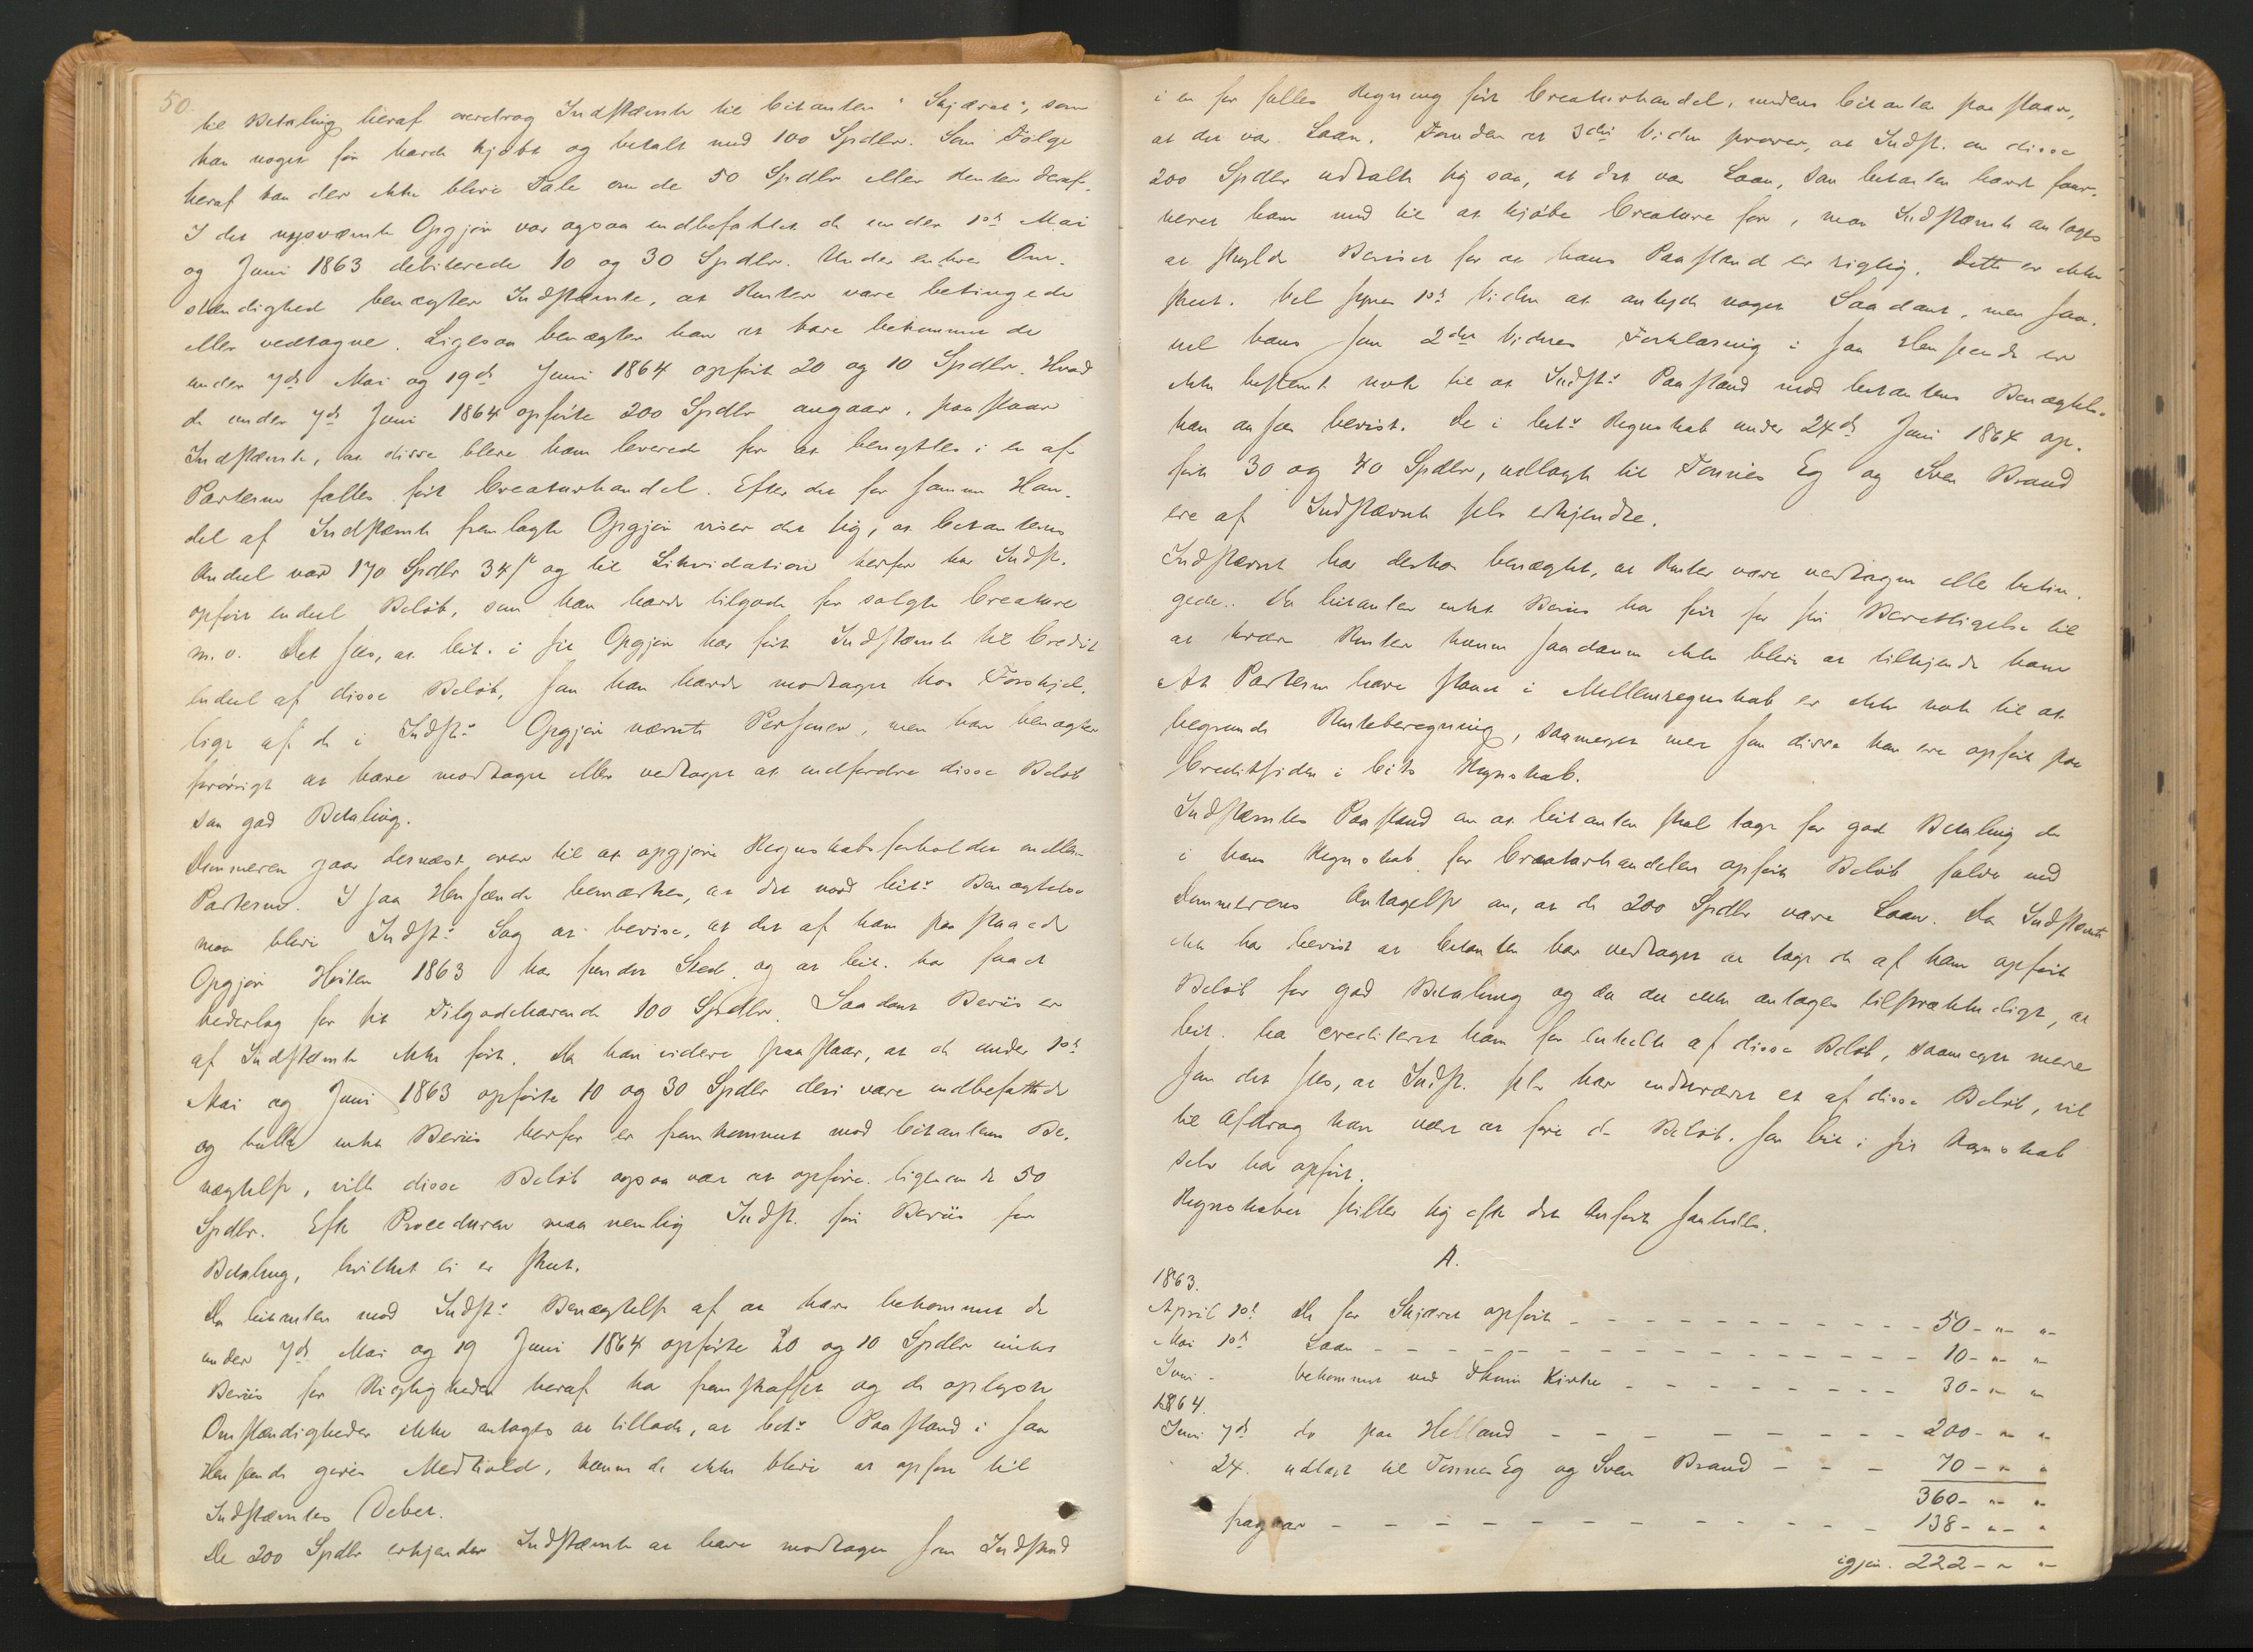 50.
til Betaling heraf overdrog Indstævnte til Citanten "Skjæret", som
han noget før havde kjøbt og betalt med 100 Spdlr. Som Følge
heraf kan der ikke blive Tale om de 50 Spdlr eller Renter deraf.
I det nysnævnte Opgjør var ogsaa indbefattet de under 1ste Mai
og Juni 1863 debiterede 10 og 30 Spdlr. Under enhver Om-
stændighed benægter Indstævnte, at Renter vare betingede
eller vedtagne. Ligesaa benægter han at have bekommet de
under 7de Mai og 19de Juni 1864 opførte 20 og 10 Spdlr. Hvad
de under 7de Juni 1864 opførte 200 Spdlr angaar, paastaar
Indstævnte, at disse bleve ham leverede for at benyttes i en af
Parterne fælles ført Creaturhandel. Efter det for samme Han-
del af Indstævnte fremlagte Opgjør viser det sig, at Citantens
Andeel var 170 Spdlr 34 s og til Likvidation herfor har Indst.
opført endeel Beløb, som han havde tilgode for solgte Creature
m.v. Det sees, at Cit. i sit Opgjør har ført Indstævnte til Credit
endeel af disse Beløb, som han havde modtaget hos Forskjel-
lige af de i Indst:s Opgjør nævnte Personer, men han benægter
forøvrigt at have modtaget eller vedtaget at indfordre disse Beløb
som god Betaling.
Dommeren gaar dernæst over til at opgjøre Regnskabsforholdet mellem
Parterne. I saa Henseende bemærkes, at det mod Cit:s Benægtelse
maa blive Indst:s Sag at bevise, at det af ham paastaaede
Opgjør Høsten 1863 har fundet Sted og at Cit. har faaet
Vederlag for sit Tilgodehavende 100 Spdlr. Saadant Beviis er
af Indstævnte ikke ført. Da han videre paastaar, at de under 1ste
Mai og Juni 1863 opførte 10 og 30 Spdlr deri vare indbefattede
og heller intet Beviis herfor er fremkommet mod Citantens Be-
nægtelse, ville disse Beløb ogsaa være at opføre ligesom de 50
Spdlr. Efter Proceduren maa nemlig Indst. føre Beviis for
Betaling, hvilket ei er skeet.
Da Citanten mod Indst:s Benægtelse af at have bekommet de
under 7de Mai og 19 Juni 1864 opførte 20 og 10 Spdlr intet
Beviis for Rigtigheden heraf har fremskaffet og de oplyste
Omstændigheder ikke antages at tillade, at Cit:s Paastand i saa
Henseende gives Medhold, kunne de ikke blive at opføre til
Indstævntes Debet.
De 200 Spdlr erkjender Indstævnte at have modtaget som Indskud
i en for fælles Regning ført Creaturhandel, medens Citanten paastaar,
at det var Laan. Foruden at 3die Vidne prover, at Indst. om disse
200 Spdlr udtalte sig saa, at det var Laan, som Citanten havde for-
ham med til at kjøbe Creature for, maa Indstævnte antages
at skylde Beviset for at hans Paastand er rigtig. Dette er ikke
skeet. Vel synes 1ste Vidne at antyde noget Saadant, men saa-
vel hans som 2det Vidnes Forklaring i saa Henseende er
ikke bestemt nok til at Indst:s Paastand mod Citantens Benægtelse
kan ansees bevist. De i Cit:s Regnskab under 24de Juni 1864 op-
førte 30 og 40 Spdlr, udlagte til Tønnes Eg og Sven Brand
ere af Indstævnte selv erkjendte.
Indstævnte har derhos benægtet, at Renter vare vedtagne eller betin-
gede. Da Citanten intet Beviis har ført for sin Berettigelse til
at kræve Renter kunne saadanne ikke blive at tilkjende ham.
At Parterne have staaet i Mellemregnskab er ikke nok til at
begrunde Renteberegning, saameget mere som disse kun ere opført paa
Creditsiden i Cits Regnskab.
Indstævntes Paastand om at Citanten skal tage for god Betaling de
i hans Regnskab for Creaturhandelen opførte Beløb falder ved
Dommerens Antagelse om, at de 200 Spdlr vare Laan. Da Indstævnte
ikke har bevist at Citanten har vedtaget at tage de af ham opførte
Beløb for god Betaling og da det ikke antages tilstrækkeligt, at
Cit. har crediteret ham for enkelte af disse Beløb, saameget mere
som det sees, at Indst. selv har inddrevet et af disse Beløb, vil
til Afdrag kun være at føre de Beløb, som Cit. i sit Regnskab
selv har opført.
Regnskabet stiller sig efter det Anførte saaledes.
A.
1863.
April 1ste De for Skjæret opførte - - - 50 - " - "
Mai 1ste Laan - - - 10 - " - "
Juni - bekommet ved Kirke - - - 30 - " - "
1864.
Juni 7de do paa Helland - - - 200 - " - "
24. udlagt til Tønnes Eg og Sven Brand - - - 70 - " - "
360 - " - "
fragaar - - - 138 - " - "
igjen. 222 - " - "